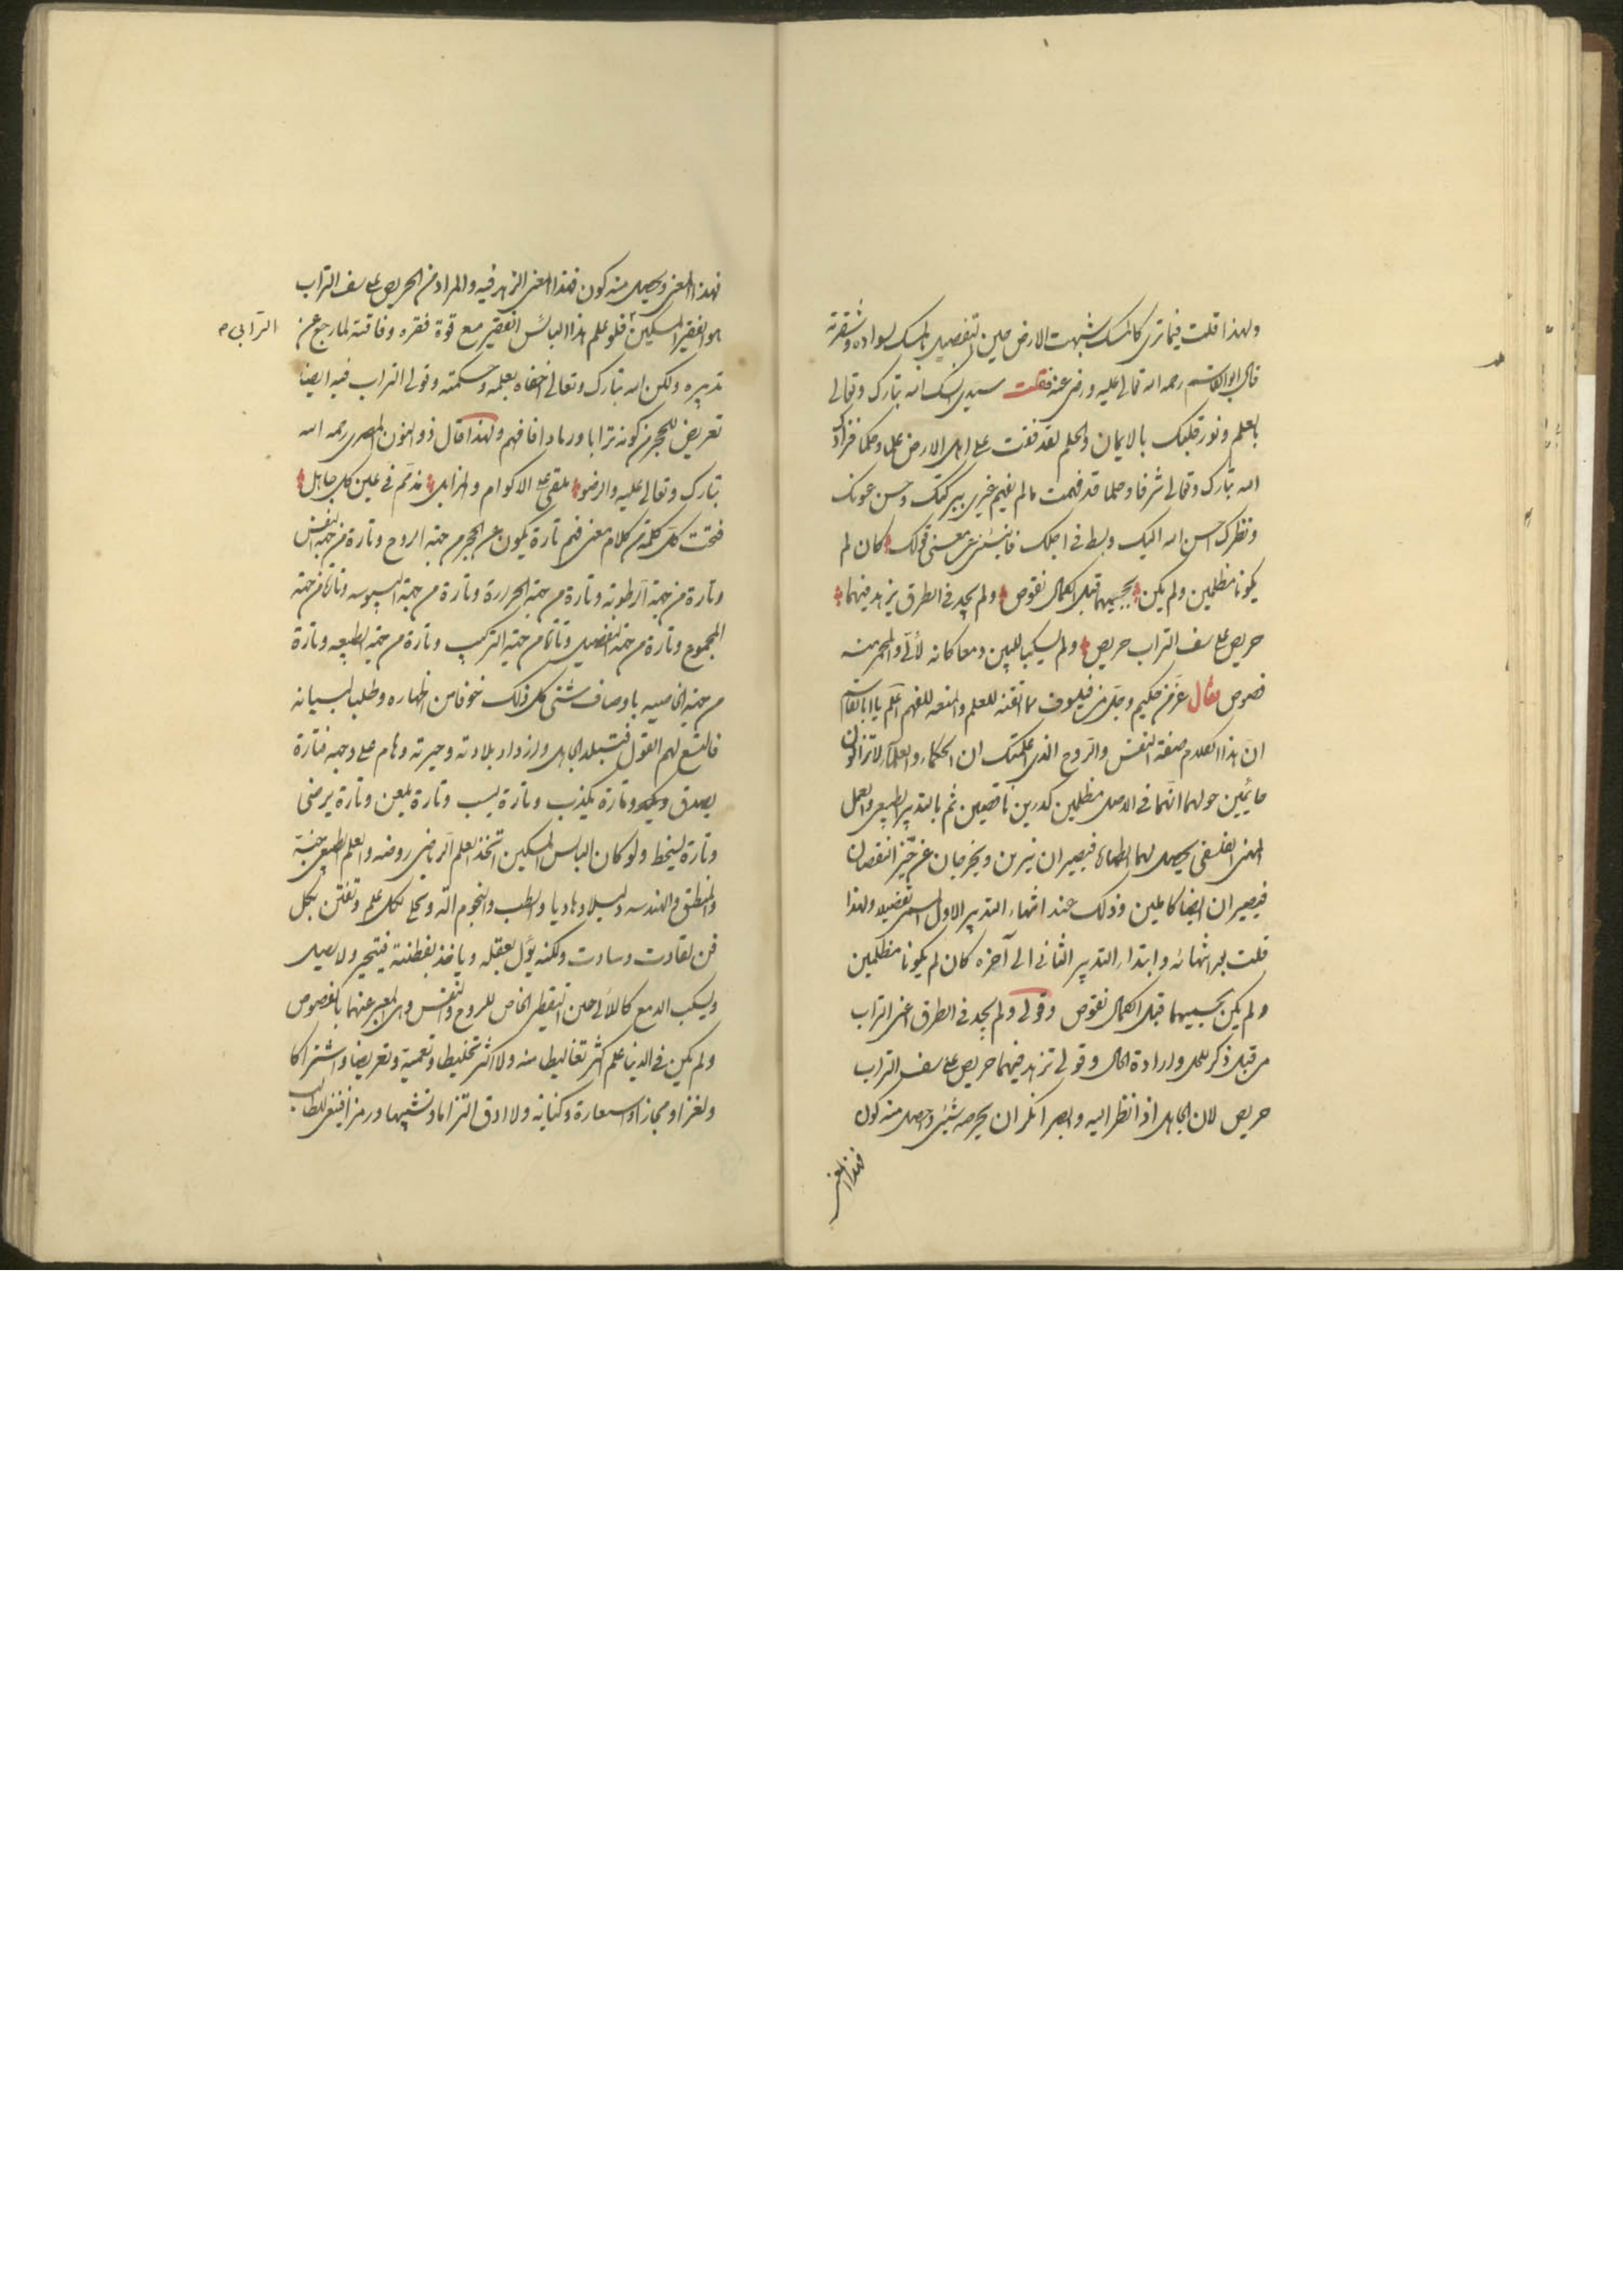 ولهذا قلت فيما ترى كالمسك شبهت الارض حين التفصيل بالمسك لسواده وشقرته
قال ابو القاسم رحمه الله تعالى عليه ورضى عنه فقلت سيدى اسك الله تبارك وتعالى
بالعلم ونور قلبك بالايمان والحلم لقد فقت على اهل الارض علما وحلما فزادك
الله تبارك وتعالى شرفا وحلما قد فهمت ما لم يفهم غيرى ببركتك وحسن عونك
ونظرك احسن الله اليك وبسط فى اجلك فانبئنى عن معنى قولك كان لم
يكونا مظلمين ولم يكن بجسميهما قبل الكمال نقوص ولم يجد فى الطرق يزهد فيهما
حريص على سف التراب حريص ولم يسكبا للبين دمعا كانه لآلى والمحمر منه
فصوص فقال عز من حكيم وجل من فيلسوف ما اتقنه للعلم وامنعه للفهم اعلم يا ابا القاسم
ان هذا الكلام صفة النفس والروح الذى اعلمتك ان الحكماء والعلماء لا تزالون
حائمين حولهما انهما فى الاصل مظلمين كدرين ناقصين ثم بالتدبير الطبيعى والعمل
المهنى الفلسفى يحصل لهما الطهارة فيصيران نيرين ويخرجان عن حيز النقصان
فيصيران ايضا كاملين وذلك عند انتهاء التدبير الاول المسمى تفصيلا ولهذا
قلت بعد انتهائه وابتداء التدبير الثانى الى آخره كان لم يكونا مظلمين
ولم يكن بجسميهما قبل الكمال نقوص وقولى ولم يجد فى الطرق اعنى التراب
من قبل ذكر المحل وارادة الحال وقولى تزهد فيهما حريص على سف التراب
حريص لان الجاهل اذا نظر اليه وابصر انكر ان يحرصه شيئ وحصل منه كون
فهذا المعنى
فهذا المعنى وتحصيل منه كون فهذا المعنى الزهد فيه والمراد من الحريص على سف التراب
هو الفقير المسكين فلو علم هذا البائس الفقير مع قوة فقره وفاقته لما رجع عن
الترابى ٢
تدبيره ولكن الله تبارك وتعالى اخفاه بعلمه وحكمته وقولى التراب فيه ايضا
تعريض للحجر من كونه ترابا ورمادا فافهم ولهذا قال ذو النون المصرى رحمه الله
تبارك وتعالى عليه والرضوا ملقى على الاكوام والمزابل مذمم فى عين كل جاهل
فتحت كل كلمة من كلام معنى فنم تارة يكون عن الحجر من جهة الروح وتارة من جهة النفس
وتارة من جهة الرطوبه وتارة من جهة الحرارة وتارة من جهة اليبوسه وتارة من جهة
المجموع وتارة من جهة التفصيل وتارة من جهة التركيب وتارة من جهة الطبيعه وتارة
من جهة الخاصيه باوصاف شتى كل ذلك خوفا من اظهاره وطلبا لبيانه
فاتسع لهم القول فتبلد الجاهل وازداد بلادته وحيرته وهام على وجهه فتارة
يصدق وتارة يكذب وتارة يسب وتارة يلعن وتارة يرضى
وتارة يسخط ولو كان البائس المسكين اتخذ العلم الرياضى روضه والعلم الطبيعى جنة
والمنطق والهندسه دليلا وهاديا والطب والنجوم آلة وتحلى بكل علم وتفنن بكل
فن لقادت وسادت ولكنه يؤل بعقله وياخذ بفطنته فيتحير ولا يصل
ويسكب الدمع كاللآلى حين التقطير الخاص للروح والنفس وهى المعبر عنهما بالفصوص
ولم يكن فى الدنيا علم اكثر تغاليطا منه ولا اكثر تخليطا وتعمية وتعريضا واشتراكا
ولغزا ومجازا واستعارة وكناية ولا ادق التزاما وتشبيها ورمزا فينبغى للطالب